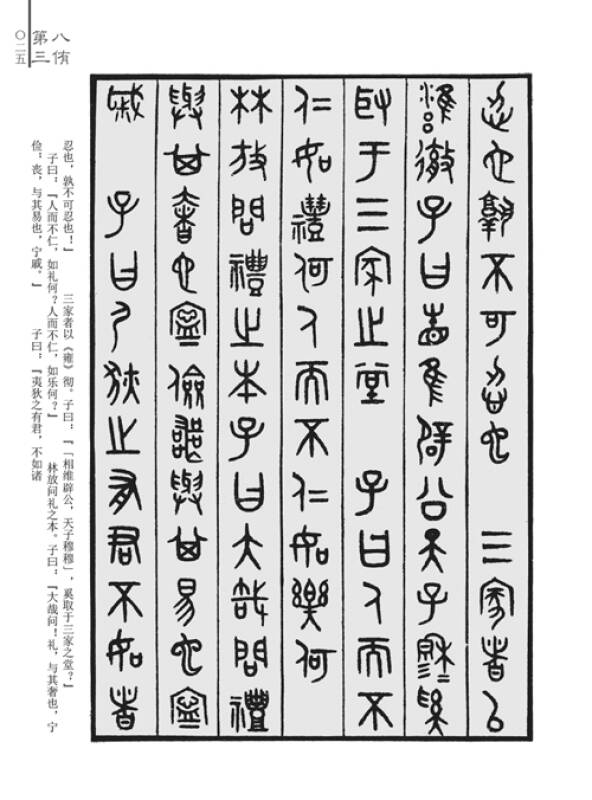 忍也孰不可忍也 三家者以
雍徹子曰相維辟公天子穆=奚
取于三家之堂 子曰人而不
仁如禮何人而不仁如樂何
林放問禮之本子曰大哉問禮
與其奢也寧儉喪與其易也寧
戚 子曰夷狄之有君不如者
八佾
第三
〇二五
忍也，孰不可忍也！』 三家者以《雍》彻。子曰：『「相维辟公，天子穆穆」，奚取于三家之堂？』
子曰：『人而不仁，如礼何？人而不仁，如乐何？』 林放问礼之本。子曰：『大哉问！礼，与其奢也，宁
俭；丧，与其易也，宁戚。』 子曰：『夷狄之有君，不如诸